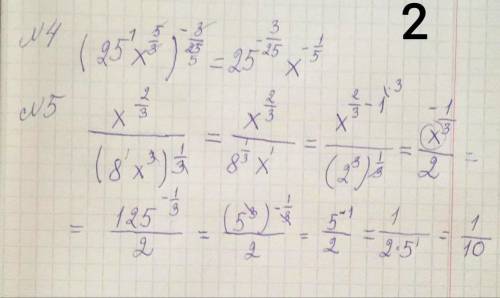 2
№4 (25¹ x^(5/3))^(-3/25) = 25^(-3/25) x^(-1/5)
№5 x^(2/3) / (8¹ x³)^(1/3) = x^(2/3) / (8^(1/3) x¹) = x^(2/3 - 1) / (2³)^(1/3) = x^(-1/3) / 2 =
= 125^(-1/3) / 2 = (5³)^(-1/3) / 2 = 5^(-1) / 2 = 1 / (2·5¹) = 1/10